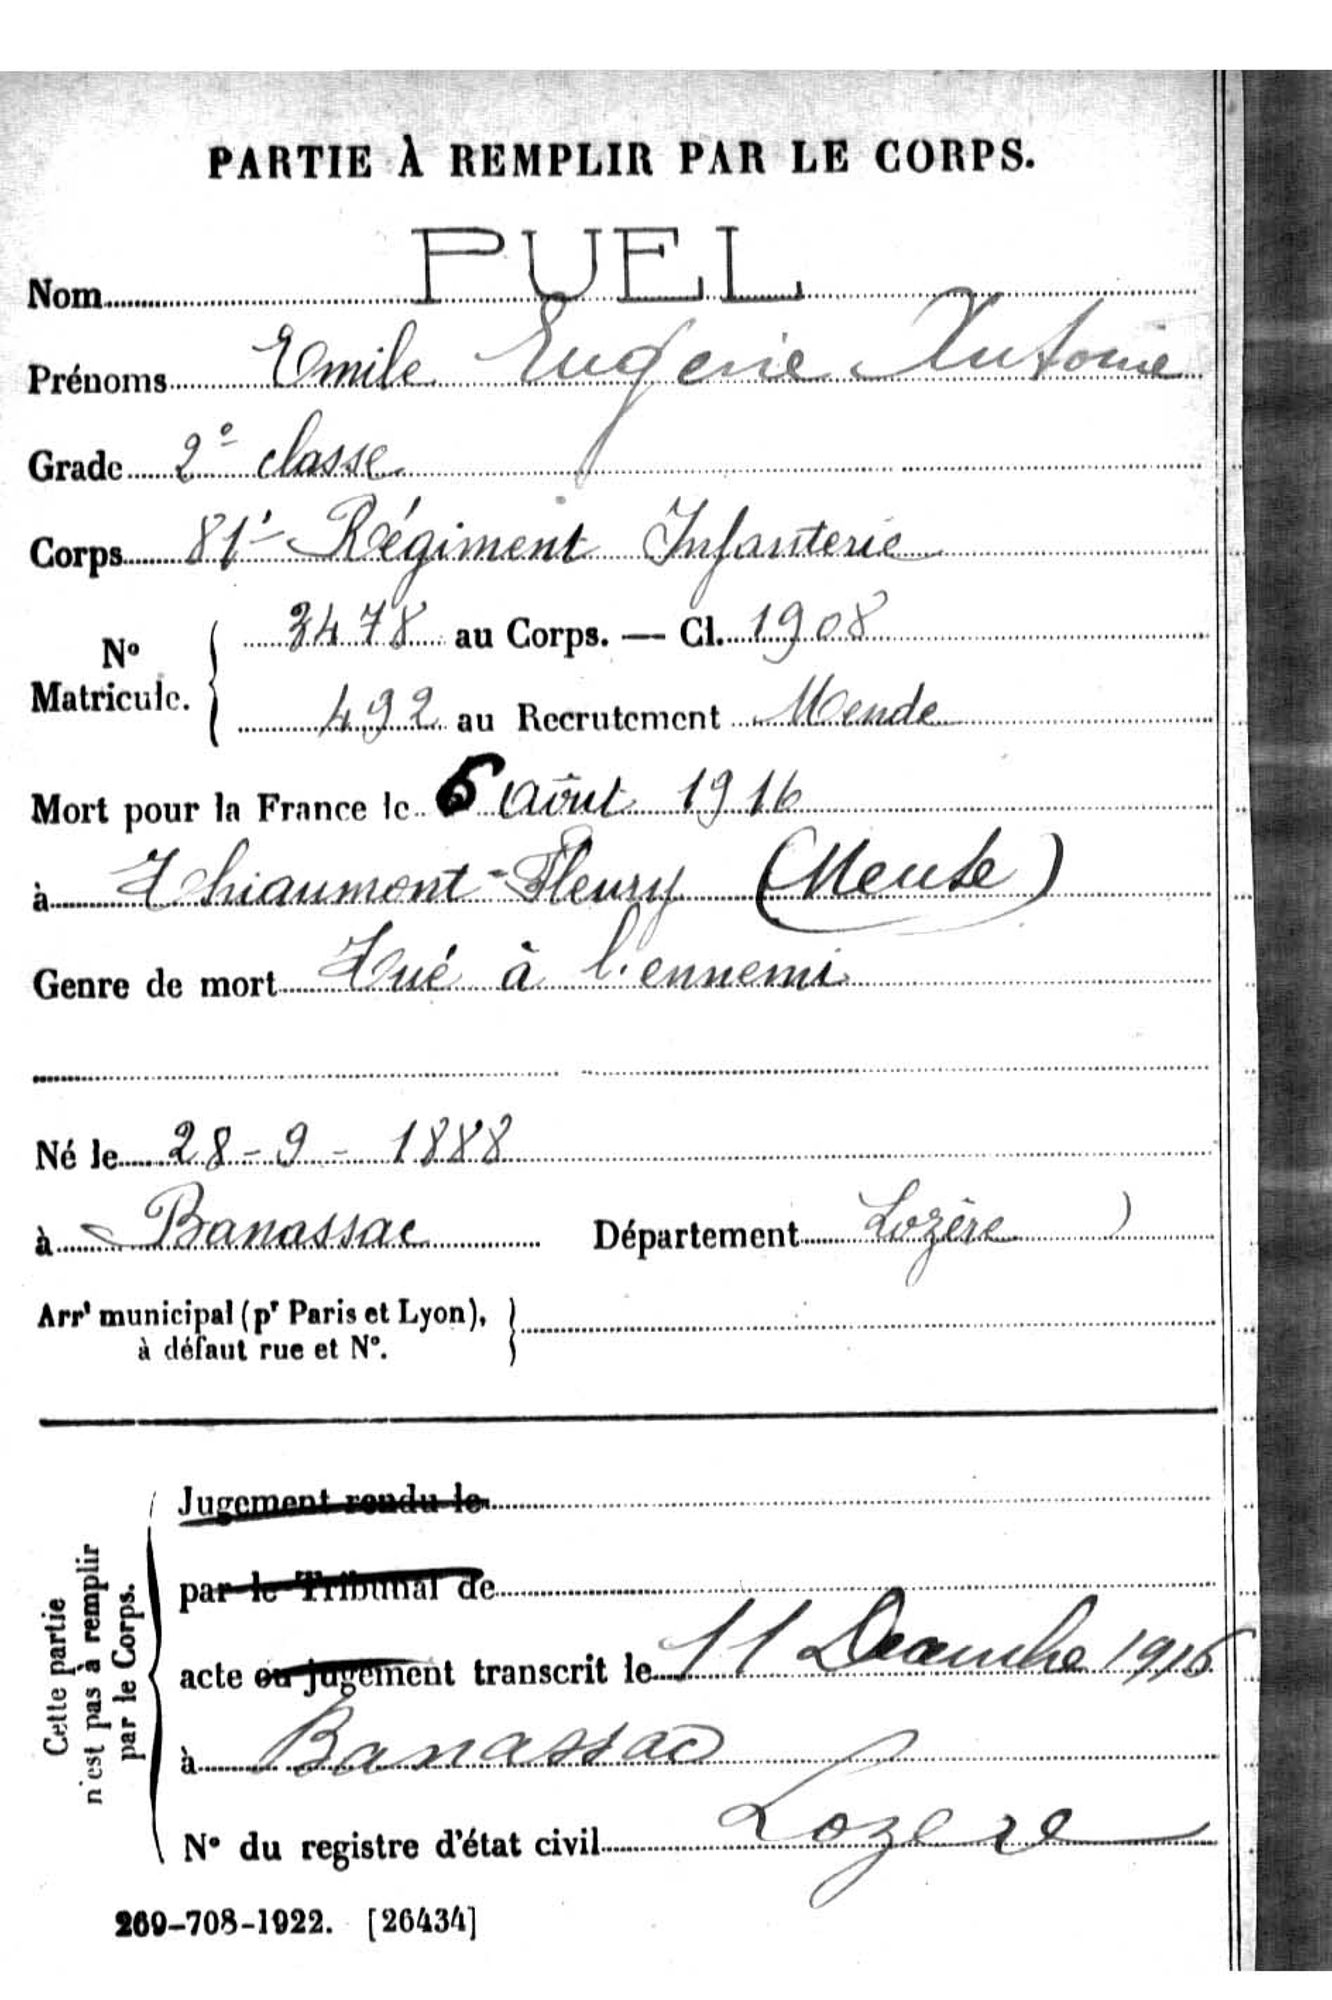 PARTIE À REMPLIR PAR LE CORPS.
Nom PUEL
Prénoms Emile Eugène Antoine
Grade 2e classe
Corps 81e Régiment Infanterie
No Matricule. 3478 au Corps. — Cl. 1908
492 au Recrutement Mende
Mort pour la France le 6 Août 1916
à Thiaumont-Fleury (Meuse)
Genre de mort Tué à l'ennemi
Né le 28-9-1888
à Banassac Département Lozère
Arrt municipal (pr Paris et Lyon),
à défaut rue et No.
Cette partie
n'est pas à remplir
par le Corps.
Jugement rendu le
par le Tribunal de
acte ou jugement transcrit le 11 Decembre 1916
à Banassac
No du registre d'état civil Lozere
269-708-1922. [26434]